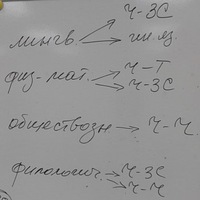 Ч-ЗС
лингв. → ин. яз.
физ-мат. → Ч-Т
→ Ч-ЗС
обществозн → Ч-Ч
филологич. → Ч-ЗС
→ Ч-Ч